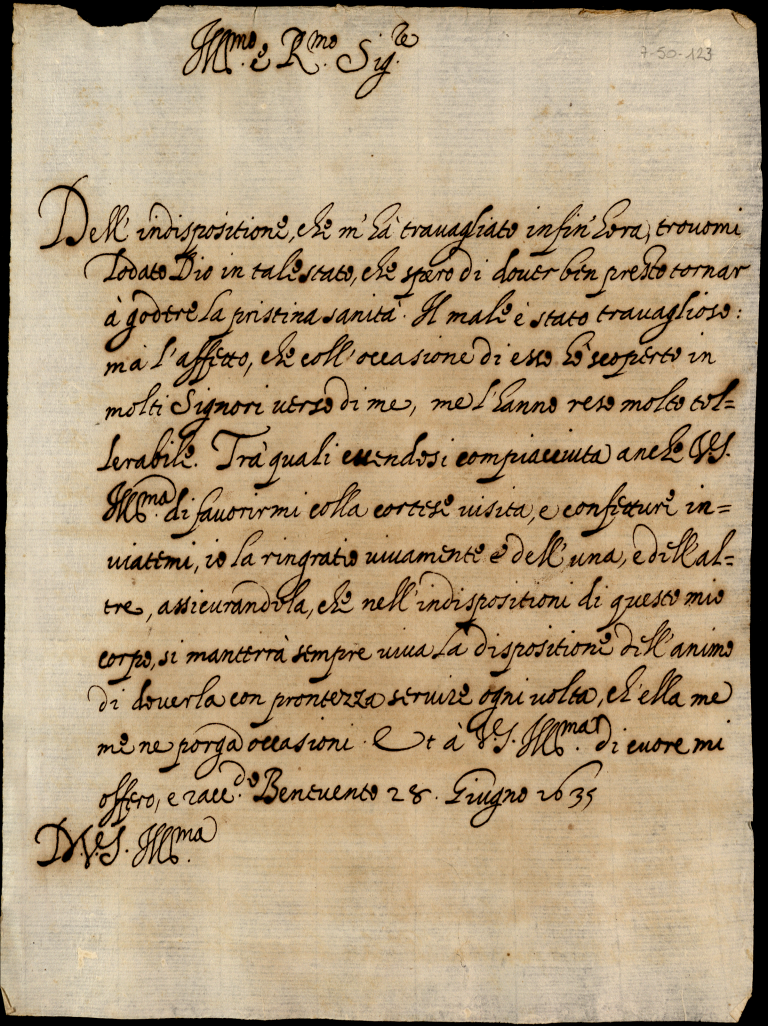 Ill.mo e R.mo Sig.re
7-50-123
Dell' indispositione, che m' hà travagliato infin' hora, trovomi
lodato Dio in tale stato, che spero di dover ben presto tornar
à godere la pristina sanità. Il male è stato travaglioso:
mà l'affetto, che coll' occasione di esso hò scoperto in
molti Signori verso di me, me l'hanno reso molto tol=
lerabile. Trà quali essendosi compiacciuta anche V.S.
Ill.ma di favorirmi colla cortese visita, e confetture in=
viatemi, io la ringratio vivamente e dell' una, e dell'al=
tre, assicurandola, che nell' indispositioni di questo mio
corpo, si manterrà sempre viva la dispositione dell'animo
di doverla con prontezza servire ogni volta, ch' ella me
me ne porga occasioni. Et à V.S. Ill.ma di cuore mi
offero, e racc.do Benevento 28. Giugno 1635
D.V.S. Ill.ma